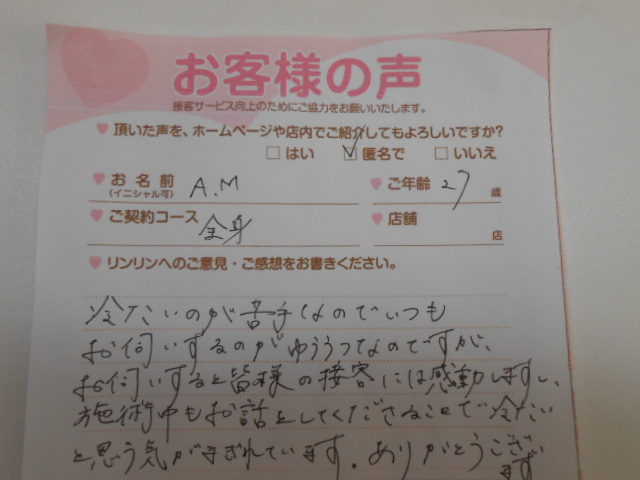 お客様の声
接客サービス向上のためにご協力をお願いいたします。
頂いた声を、ホームページや店内でご紹介してもよろしいですか?
はい 匿名で いいえ
お名前 (イニシャル可) A.M ご年齢 27 歳
ご契約コース 全身 店舗 店
リンリンへのご意見・ご感想をお書きください。
冷たいのが苦手なのでいつも
お伺いするのがゆううつなのですが、
お伺いすると皆様の接客には感動しますし、
施術中もお話をしてくださることで冷たい
と思う気がまぎれています。ありがとうござい
ます